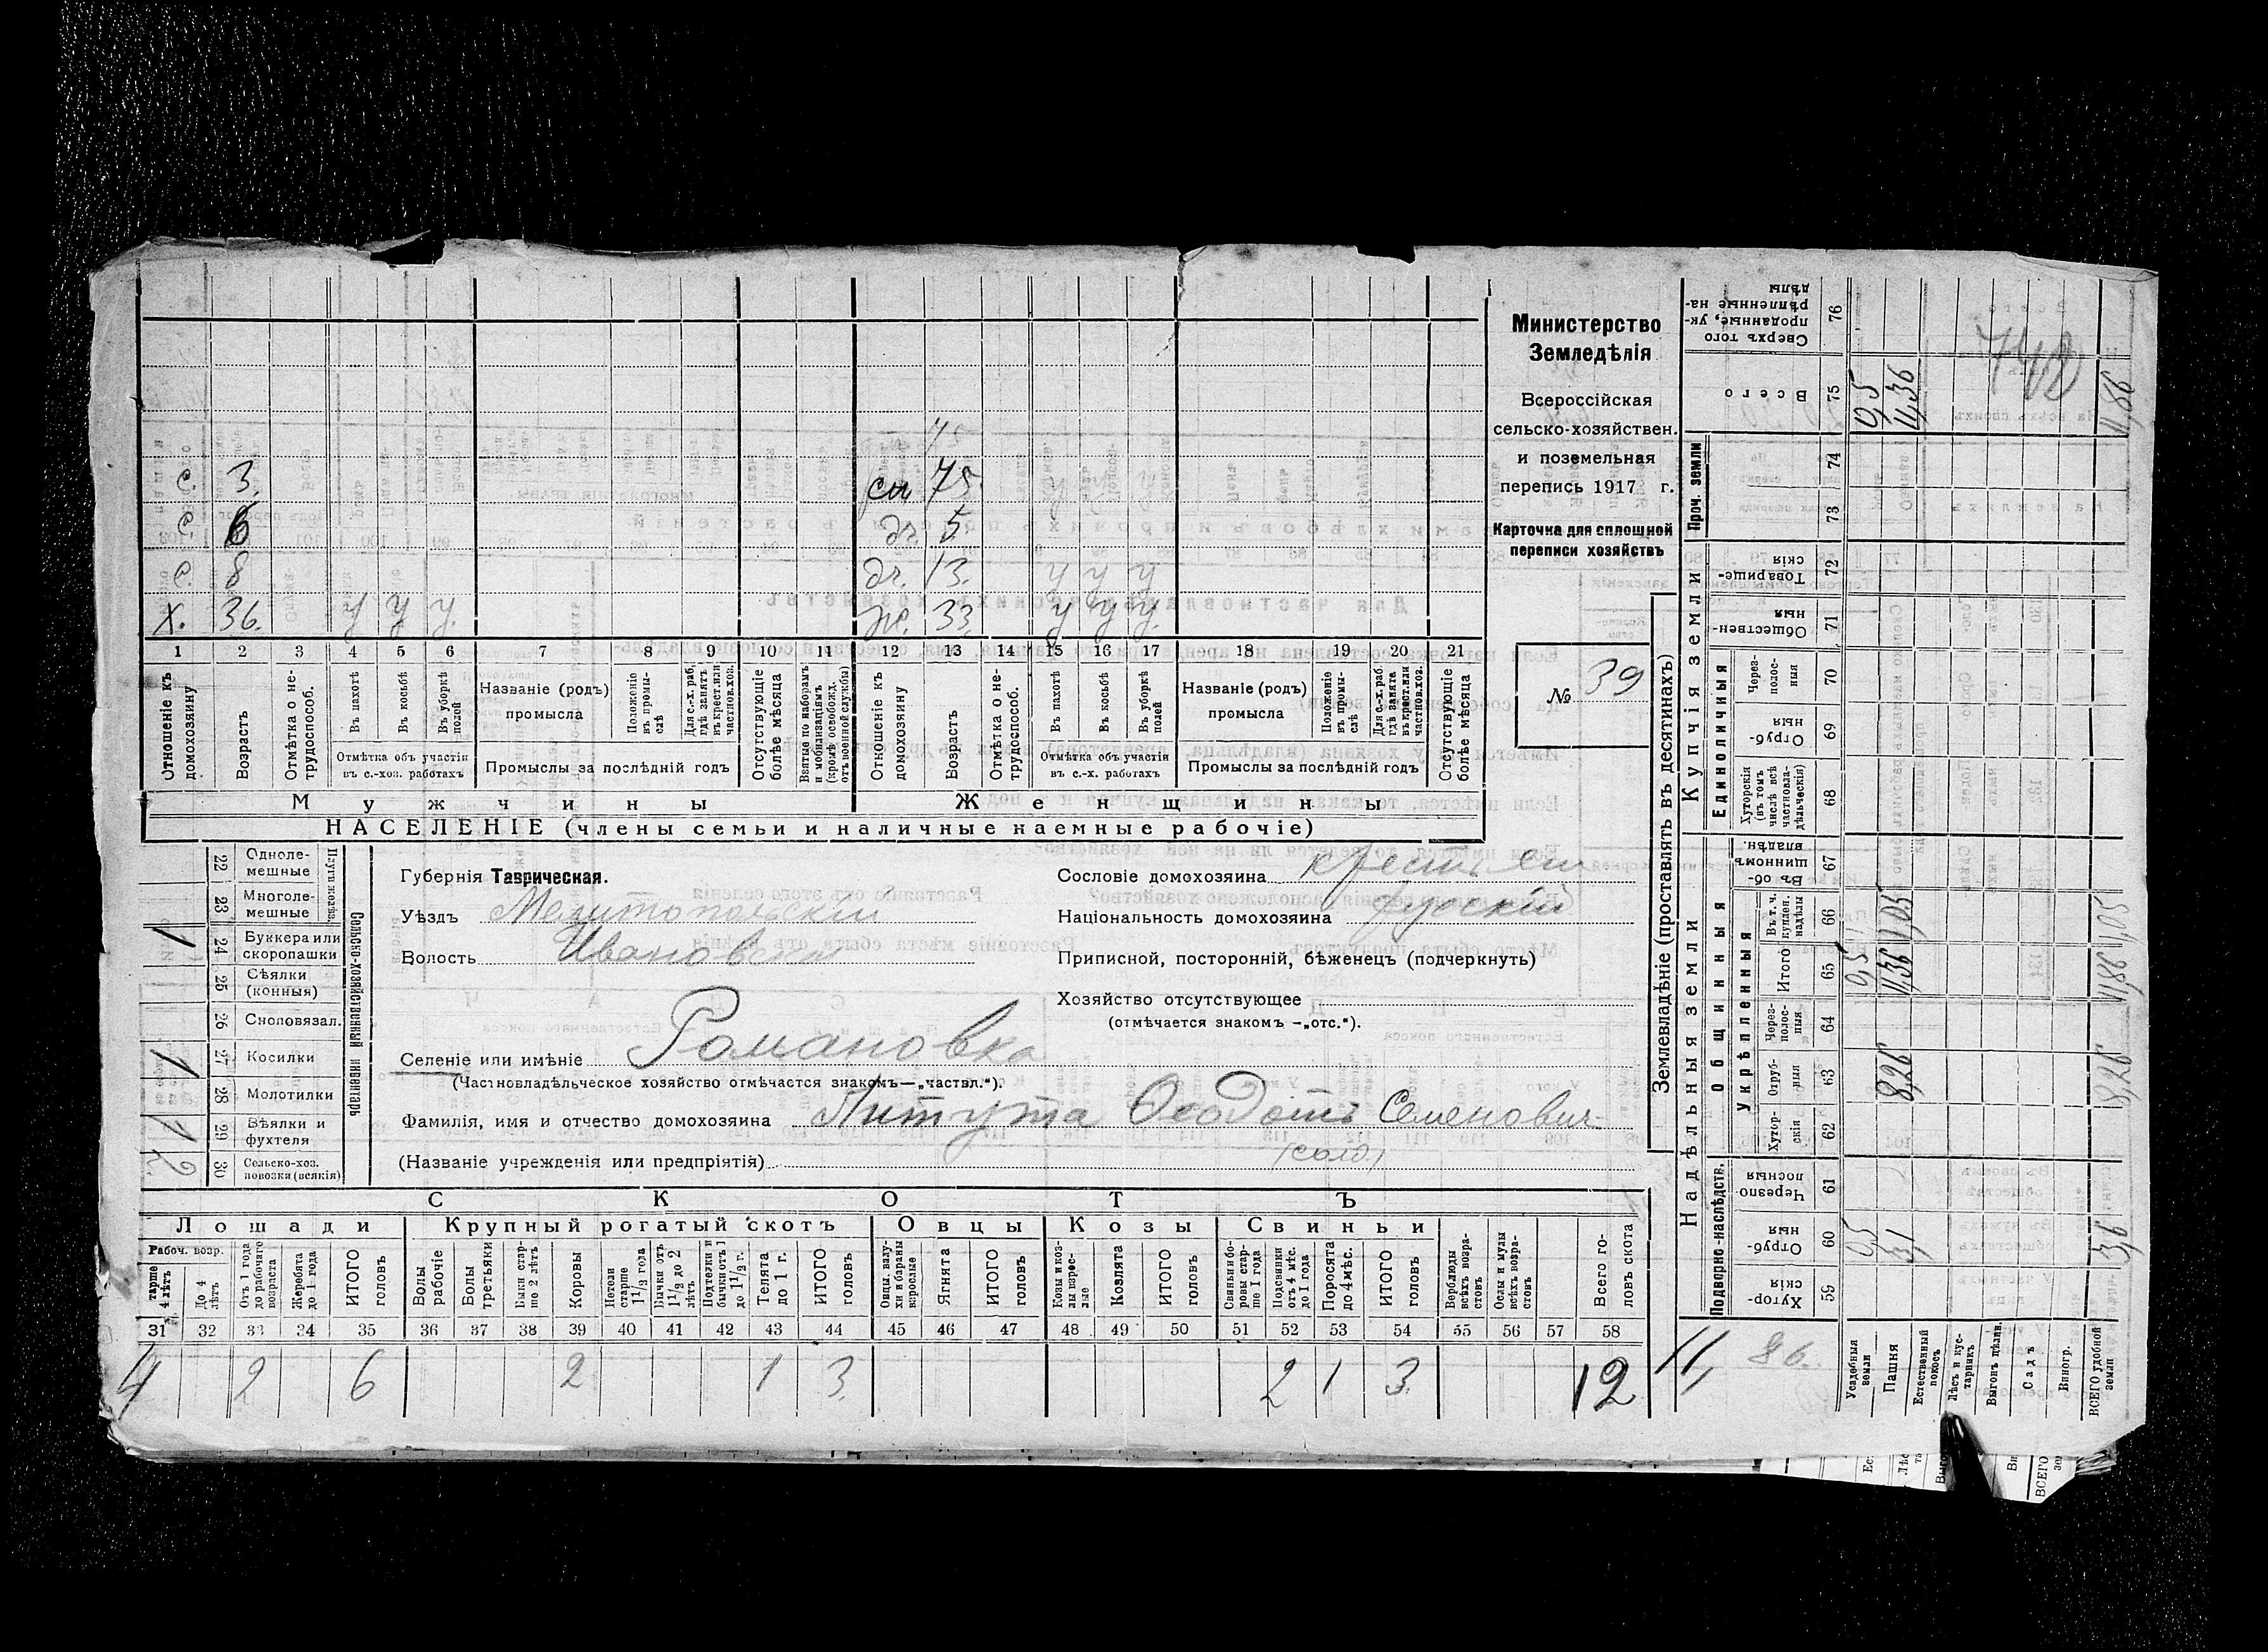 с. 3. см 75.
с. 6 дч. 5.
с. 8 дч. 13. у у у
х. 36. у у у. ж. 33. у у у.
1 2 3 4 5 6 7 8 9 10 11 12 13 14 15 16 17 18 19 20 21
Отношеніе къ домохозяину
Возрастъ
Отмѣтка о не-трудоспособ.
Въ пахотѣ
Въ косьбѣ
Въ уборкѣ полей
Отмѣтка объ участіи въ с.-хоз. работахъ
Названіе (родъ) промысла
Положеніе въ промы-слѣ
Для с.-х. раб, гдѣ занятъ въ крест. или частнов. хоз.
Промыслы за послѣдній годъ
Отсутствующіе болѣе мѣсяца
Взятые по наборамъ и мобилизаціямъ (кромѣ освобожд. отъ военной службы)
Отношеніе къ домохозяину
Возрастъ
Отмѣтка о не-трудоспособ.
Въ пахотѣ
Въ косьбѣ
Въ уборкѣ полей
Отмѣтка объ участіи въ с.-х. работахъ
Названіе (родъ) промысла
Положеніе въ промы-слѣ
Для с.-х. раб. гдѣ занята въ крест. или частнов. хоз.
Промыслы за послѣдній годъ
Отсутствующіе болѣе мѣсяца
Мужчины Женщины
НАСЕЛЕНІЕ (члены семьи и наличные наемные рабочіе)
Министерство
Земледѣлія
Всероссійская
сельско-хозяйствен.
и поземельная
перепись 1917 г.
Карточка для сплошной
переписи хозяйствъ
№ 39
Сельско-хозяйственный инвентарь
22 Одноле-мешные
23 Многоле-мешные
1 24 Буккера или скоропашки
25 Сѣялки (конныя)
26 Сноповязал.
1 27 Косилки
28 Молотилки
1 29 Вѣялки и фухтеля
2 30 Сельско-хоз. повозки (всякія)
Губернія Таврическая.
Уѣздъ Мелитопольскій
Волость Ивановская
Селеніе или имѣніе Романовка
(Частновладѣльческое хозяйство отмѣчается знакомъ—„частвл.“).
Фамилія, имя и отчество домохозяина Питута Ѳеодотъ Семенович
(Названіе учрежденія или предпріятія) (солд)
Сословіе домохозяина
Національность домохозяина русскій
Приписной, посторонній, бѣженецъ (подчеркнуть)
Хозяйство отсутствующее
(отмѣчается знакомъ —„отс.“).
СКОТЪ
Лошади Крупный рогатый скотъ Овцы Козы Свиньи
Рабоч. возр.
старше 4 лѣтъ
До 4 лѣтъ
Отъ 1 года до рабочаго возраста
Жеребята до 1 года
ИТОГО головъ
Волы рабочіе
Волы третьяки
Быки стар-ше 2 лѣтъ
Коровы
Нетели старше 1½ года
Бычки отъ 1½ до 2 лѣтъ
Подтелки и бычки отъ 1 до 1½ г.
Телята до 1 г.
ИТОГО головъ
Овцы, валу-хи и бараны взрослые
Ягнята
ИТОГО головъ
Козы и коз-лы взрос-лые
Козлята
ИТОГО головъ
Свиньи и бо-ровы стар-ше 1 года
Подсвинки отъ 4 мѣс. до 1 года
Поросята до 4 мѣс.
ИТОГО головъ
Верблюды всѣхъ возра-стовъ
Ослы и мулы всѣхъ возра-стовъ
Всего го-ловъ скота
31 32 33 34 35 36 37 38 39 40 41 42 43 44 45 46 47 48 49 50 51 52 53 54 55 56 57 58
4 2 6 2 1 3. 2 1 3. 12
Землевладѣніе (проставлять въ десятинахъ)
Надѣльныя земли
Купчія земли
Подворно-наслѣдств.
Общинныя
Укрѣпленныя
Единоличныя
Проч. земли
Сверхъ того проданные, ук-рѣпленные на-дѣлы 76
Всего 75 0,5 11,36 11,86
74
73
Товарище-скія 72
Обществен-ныя 71
Через-полос-ныя 70
Отруб-ныя 69
Хуторскія (въ томъ числѣ всѣ частновла-дѣльческія) 68
Въ об-щинномъ владѣн. 67
Въ т. ч. куплен. надѣлы 66 1,05 1,05
Итого 65 0,5 11,36 11,86
Через-полос-ныя 64
Отруб-ныя 63 8,26 8,26
Хутор-скія 62
Черезпо-лосныя 61
Отруб-ныя 60 0,5 3,1 3,6
Хутор-скія 59
11, 86.
Усадебныя земли
Пашня
Естественный покосъ
Лѣсъ и кус-тарникъ
Выгонъ цѣлин.
Садъ
Виногр.
ВСЕГО удобной земли
742